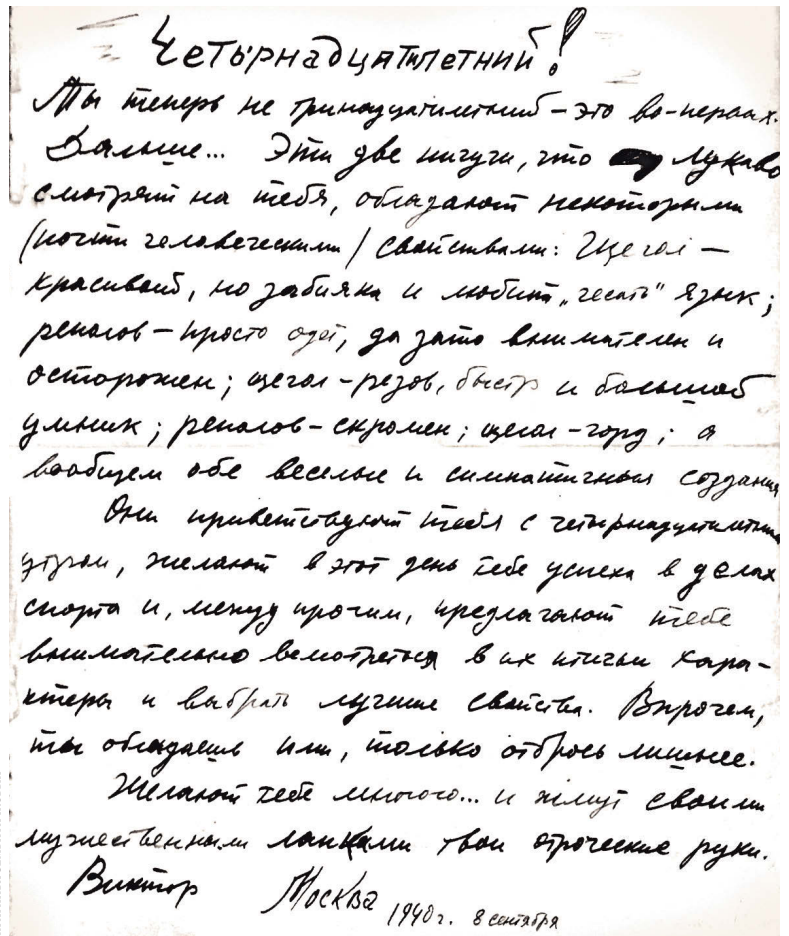 Четырнадцатилетний!
Ты теперь не тринадцатилетний – это во-первых.
Дальше... Эти две пичуги, что лукаво
смотрят на тебя, обладают некоторыми
(почти человеческими) свойствами: Щегол –
красивый, но забияка и любит „чесать" язык;
реполов – просто одет, да зато внимателен и
осторожен; щегол – резов, быстр и большой
умник; реполов – скромен; щегол – горд; а
вообщем обе веселые и симпатичные создания
Они приветствуют тебя с четырнадцатилетним
утром, желают в этот день тебе успеха в делах
спорта и, между прочим, предлагают тебе
внимательно всмотреться в их птичьи хара-
ктеры и выбрать лучшие свойства. Впрочем,
ты обладаешь ими, только отбрось лишнее.
Желают тебе многого... и жмут своими
мужественными лапками твои отроческие руки.
Виктор Москва 1940 г. 8 сентября